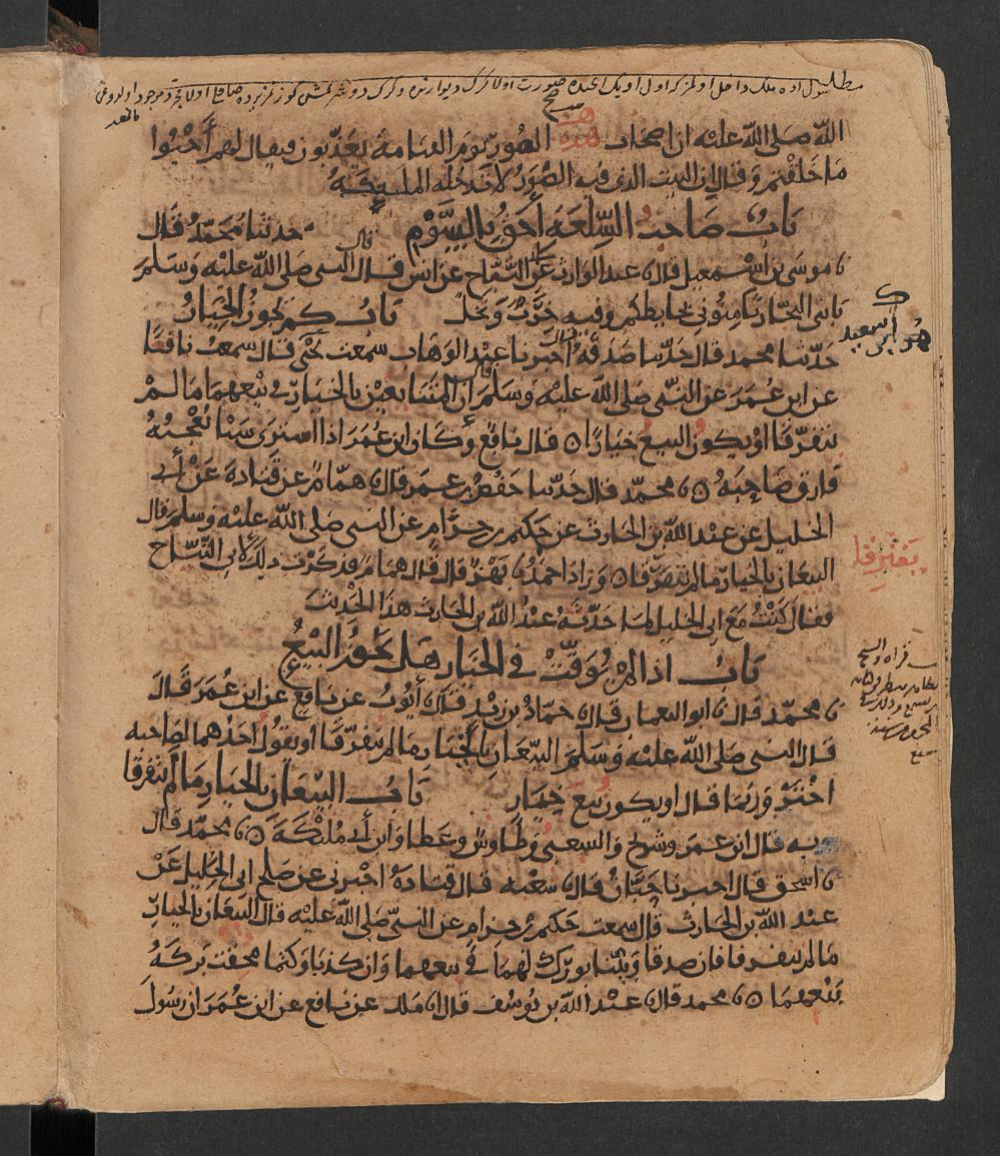 الله صلى الله عليه ان اصحاب هذه الصور يوم القيامة يعذبون ويقال لهم أحيوا
ما خلقتم وقال ان البيت الذى فيه الصور لا تدخله الملئيكة
باب صاحب السلعة أحق بالسوم حدثنا محمد قال
نا موسى بن اسمعيل قال نا عبد الوارث عن أبى التياح عن انس قال قال النبى صلى الله عليه وسلم
يا بنى النجار ثامنونى بحايطكم وفيه خرب ونخل باب كم يجوز الخيار
حدثنا محمد قال حدثنا صدقة قال اخبرنا عبد الوهاب سمعت يحيى قال سمعت نافعا
عن ابن عمر عن النبى صلى الله عليه وسلم قال ان المتبايعين بالخيار فى بيعهما ما لم
يتفرقا او يكون البيع خيارا قال نافع وكان ابن عمر اذا اشترى شيئا يعجبه
فارق صاحبه نا محمد قال حدثنا حفص بن عمر قال نا همام عن قتادة عن أبى
الخليل عن عبد الله بن الحارث عن حكيم بن حزام عن النبى صلى الله عليه وسلم قال
يفترقا
البيعان بالخيار ما لم يتفرقا وزاد احمد نا بهز قال قال همام فذكرت ذلك لابى التياح
فقال كنت مع ابى الخليل لما حدثه عبد الله بن الحارث هذا الحديث
باب اذا لم يوقت فى الخيار هل يجوز البيع
نا محمد قال نا ابو النعمان قال نا حماد بن زيد قال نا أيوب عن نافع عن ابن عمر قال
قال النبى صلى الله عليه وسلم البيعان بالخيار ما لم يتفرقا او يقول احدهما لصاحبه
اختر وربما قال او يكون بيع خيار باب البيعان بالخيار ما لم يتفرقا
وبه قال ابن عمر وشريح والشعبى وطاوس وعطا وابن أبى مليكة نا محمد قال
نا اسحق قال اخبرنا حبان قال نا شعبة قال قتادة اخبرنى عن صلح ابى الخليل عن
عبد الله بن الحارث قال سمعت حكيم بن حزام عن النبى صلى الله عليه قال البيعان بالخيار
ما لم يتفرقا فان صدقا وبينا بورك لهما فى بيعهما وان كذبا وكتما محقت بركة
بيعهما نا محمد قال نا عبد الله بن يوسف قال انا ملك عن نافع عن ابن عمر ان رسول